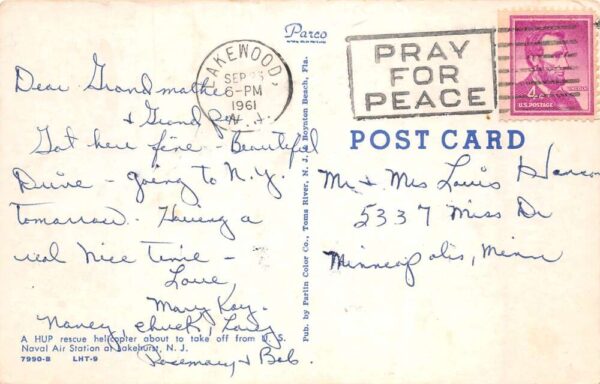 Parco
LAKEWOOD,
SEP
6-PM
1961
N.J.
PRAY
FOR
PEACE
4¢
LINCOLN
U.S. POSTAGE
POST CARD
Dear Grandmother
& Grand
Got here fine - Beautiful
Drive - going to N.Y.
tomorrow. Having a
real nice time -
Love,
Mary Kay.
Nancy, Chuck, Larry
Rosemary & Bob.
Mr & Mrs Louis
5337 Miss Dr
Minneapolis, Minn
Pub. by Parlin Color Co., Toms River, N. J. & Boynton Beach, Fla.
A HUP rescue helicopter about to take off from U. S.
Naval Air Station at Lakehurst, N. J.
7990-B LHT-9